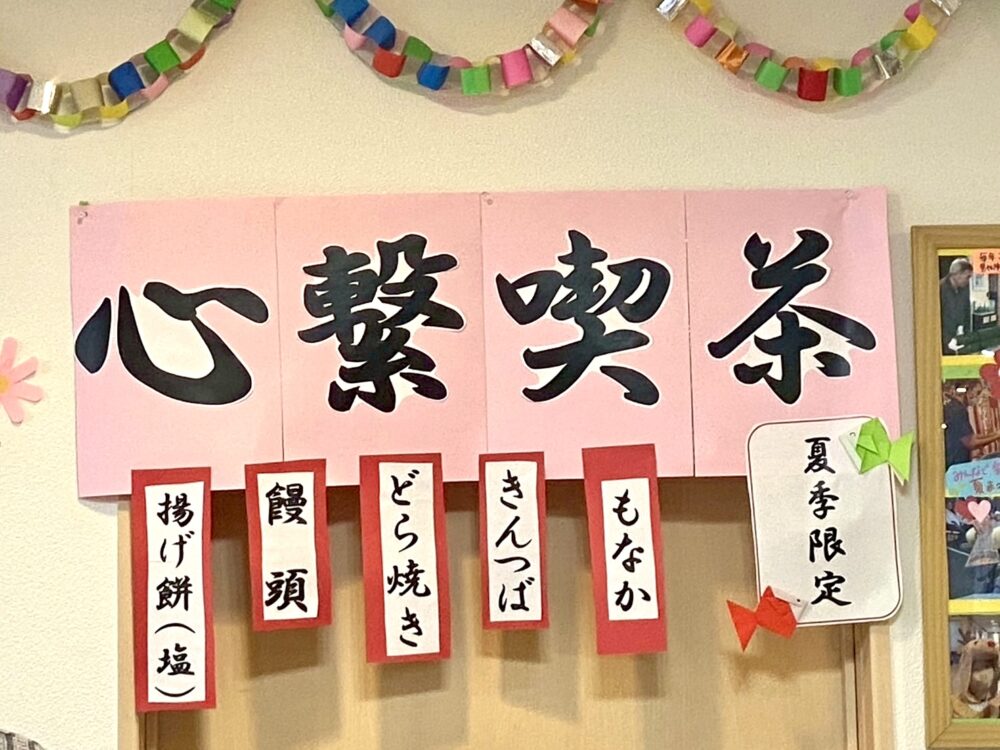 心繋喫茶
夏季限定
もなか
きんつば
どら焼き
饅頭
揚げ餅(塩)